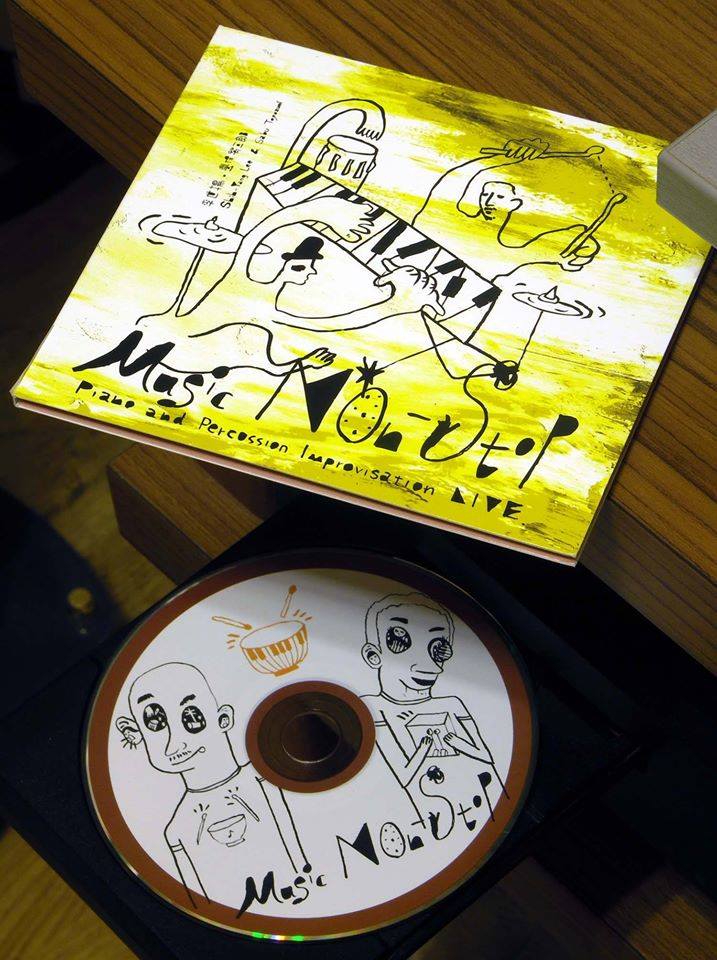 李世揚、豊住芳三郎
Shih-Yang Lee & Sabu Toyozumi
Music Non-Stop
Piano and Percussion Improvisation LIVE
Music Non-Stop